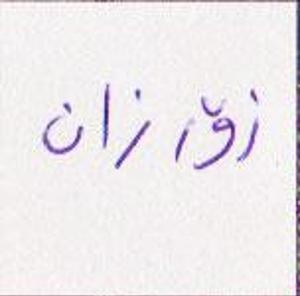 زۆر زان